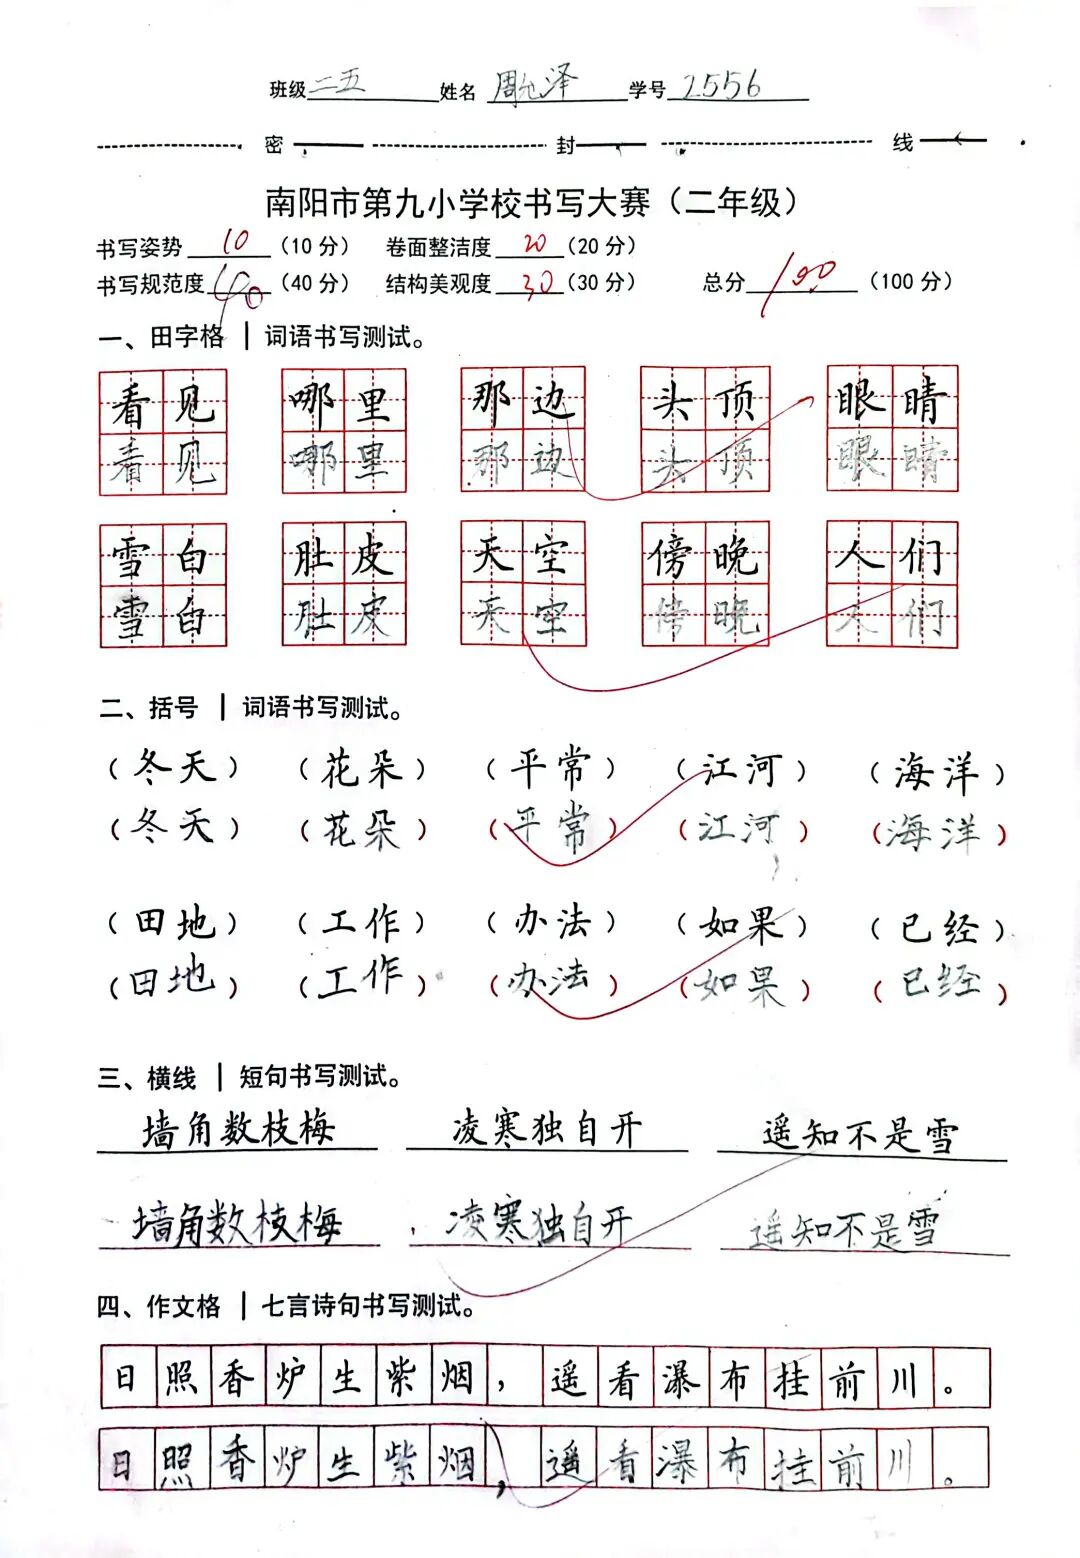 班级二五 姓名 周允泽 学号 2556
密 封 线
南阳市第九小学校书写大赛（二年级）
书写姿势 10 （10 分） 卷面整洁度 20 （20 分）
书写规范度 40 （40 分） 结构美观度 30 （30 分） 总分 100 （100 分）
一、田字格 | 词语书写测试。
看见 哪里 那边 头顶 眼睛
看见 哪里 那边 头顶 眼睛
雪白 肚皮 天空 傍晚 人们
雪白 肚皮 天空 傍晚 人们
二、括号 | 词语书写测试。
（冬天） （花朵） （平常） （江河） （海洋）
（冬天） （花朵） （平常） （江河） （海洋）
（田地） （工作） （办法） （如果） （已经）
（田地） （工作） （办法） （如果） （已经）
三、横线 | 短句书写测试。
墙角数枝梅 凌寒独自开 遥知不是雪
墙角数枝梅 凌寒独自开 遥知不是雪
四、作文格 | 七言诗句书写测试。
日照香炉生紫烟，遥看瀑布挂前川。
日照香炉生紫烟，遥看瀑布挂前川。